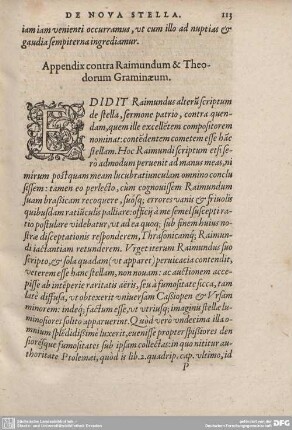 DE NOVA STELLA. 113
iam iam venienti occurramus, vt cum illo ad nuptias &
gaudia sempiterna ingrediamur.
Appendix contra Raimundum & Theo-
dorum Graminæum.
EDIDIT Raimundus alterũ scriptum
de stella, sermone patrio, contra quen-
dam, quem ille excellẽtem compositorem
nominat: contẽdentem cometem esse hãc
stellam. Hoc Raimundi scriptum etsi se-
rò admodum peruenit ad manus meas, ni
mirum postquam meam lucubratiunculam omnino conclu
sissem: tamen eo perlecto, cùm cognouissem Raimundum
suam brassicam recoquere, suosq; errores vanis & friuolis
quibusdam ratiũculis palliare: officij à me semel suscepti ra-
tio postulare videbatur, vt ad ea quoq; sub finem huius no-
stræ disceptationis responderem, Thrasonicamq; Raimun-
di iactantiam retunderem. Vrget iterum Raimundus suo
scripto, & sola quadam (vt apparet) peruicacia contendit,
veterem esse hanc stellam, non nouam: ac auctionem acce-
pisse ab intẽperie raritatis aëris, seu à fumositate sicca, tam
latè diffusa, vt obtexerit vniuersam Cassiopen & Vrsam
minorem: indeq; factum esse, vt vtriusq; imaginis stellæ lu-
minosiores solito apparuerint. Quòd verò vndecima illa o-
mnium splẽdidissimè luxerit, euenisse propter spissiores den
sioresque fumositates sub ipsam collectas: in quo nititur au-
thoritate Ptolemæi, quòd is lib. 2. quadrip. cap. vltimo, id
P